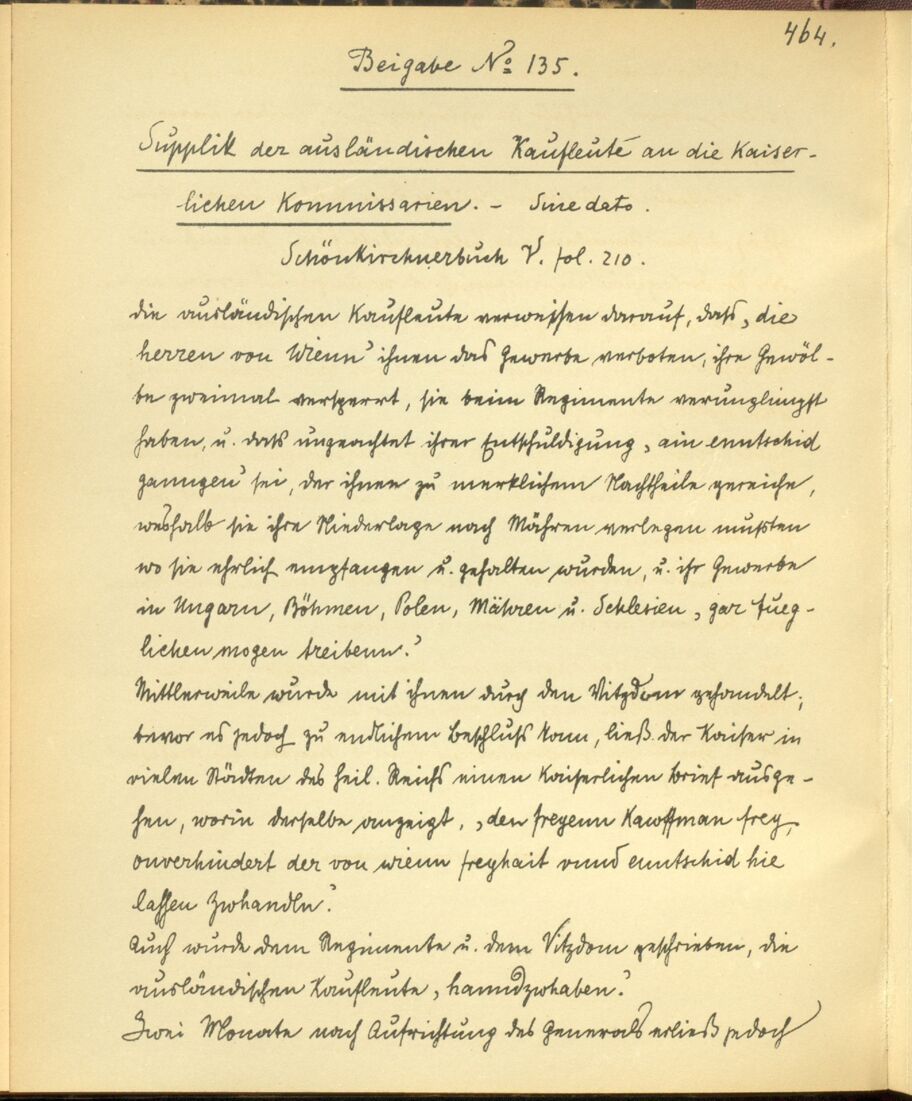 464.
Beigabe No 135.
Supplik der ausländischen Kaufleute an die Kaiser-
lichen Kommissarien. - Sine dato.
Schönkirchnerbuch V. fol. 210.
Die ausländischen Kaufleute verweisen darauf, dass „die
herren von Wienn“ ihnen das Gewerbe verboten, ihre Gewöl-
be zweimal versperrt, sie beim Regimente verunglimpft
haben, u. dass ungeachtet ihrer Entschuldigung „ain enntschid
ganngen“ sei, der ihnen zu merklichem Nachtheile gereiche,
weshalb sie ihre Niederlage nach Mähren verlegen mussten
wo sie ehrlich empfangen u. gehalten wurden, u. ihr Gewerbe
in Ungarn, Böhmen, Polen, Mähren u. Schlesien „gar fueg-
lichen mogen treibenn.“
Mittlerweile wurde mit ihnen durch den Vitzdom gehandelt;
bevor es jedoch zu endlichem Beschluss kam, ließ der Kaiser in
vielen Städten des heil. Reichs einen Kaiserlichen Brief ausge-
hen, worin derselbe anzeigt, „den freyenn Kawffman frey,
onverhindert der von wienn freyhait vnnd enntschid hie
lassen zwhandln.“
Auch wurde dem Regimente u. dem Vitzdom geschrieben, die
ausländischen Kaufleute „hanndzwhaben.“
Zwei Monate nach Aufrichtung des Generals erließ jedoch